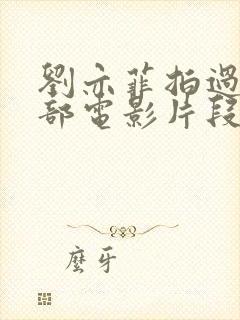 劉亦菲拍過
部電影片段
麼牙